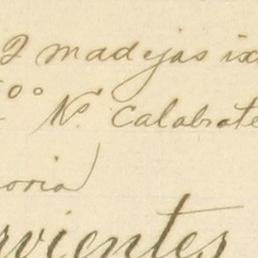 2 madejas ix
00 No. Calabrote
oria
rvientes